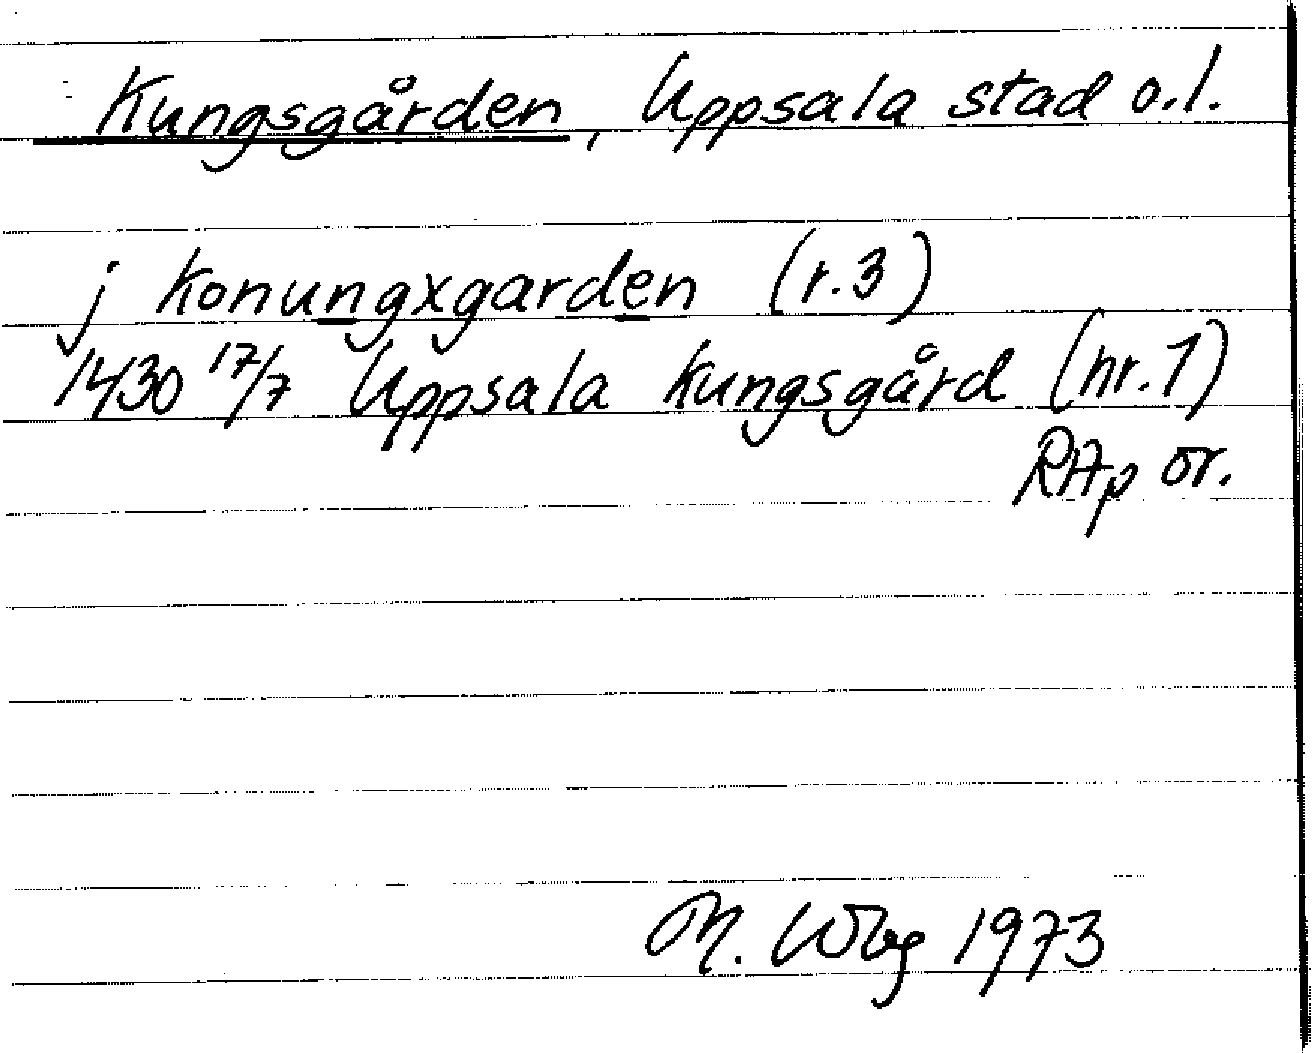 Kungsgården, Uppsala stad o.l.
j konungxgarden (r.3)
1430 17/7 Uppsala kungsgård (nr.1)
RAp or.
M. Wbg 1973